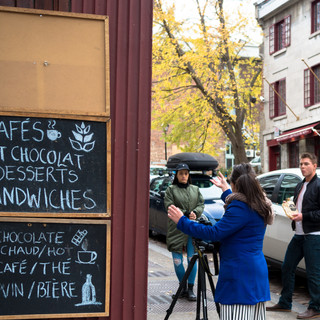 AFÉS
T CHOCOLAT
DESSERTS
ANDWICHES
CHOCOLATE
CHAUD/HOT
CAFÉ/THÉ
VIN/BIÈRE